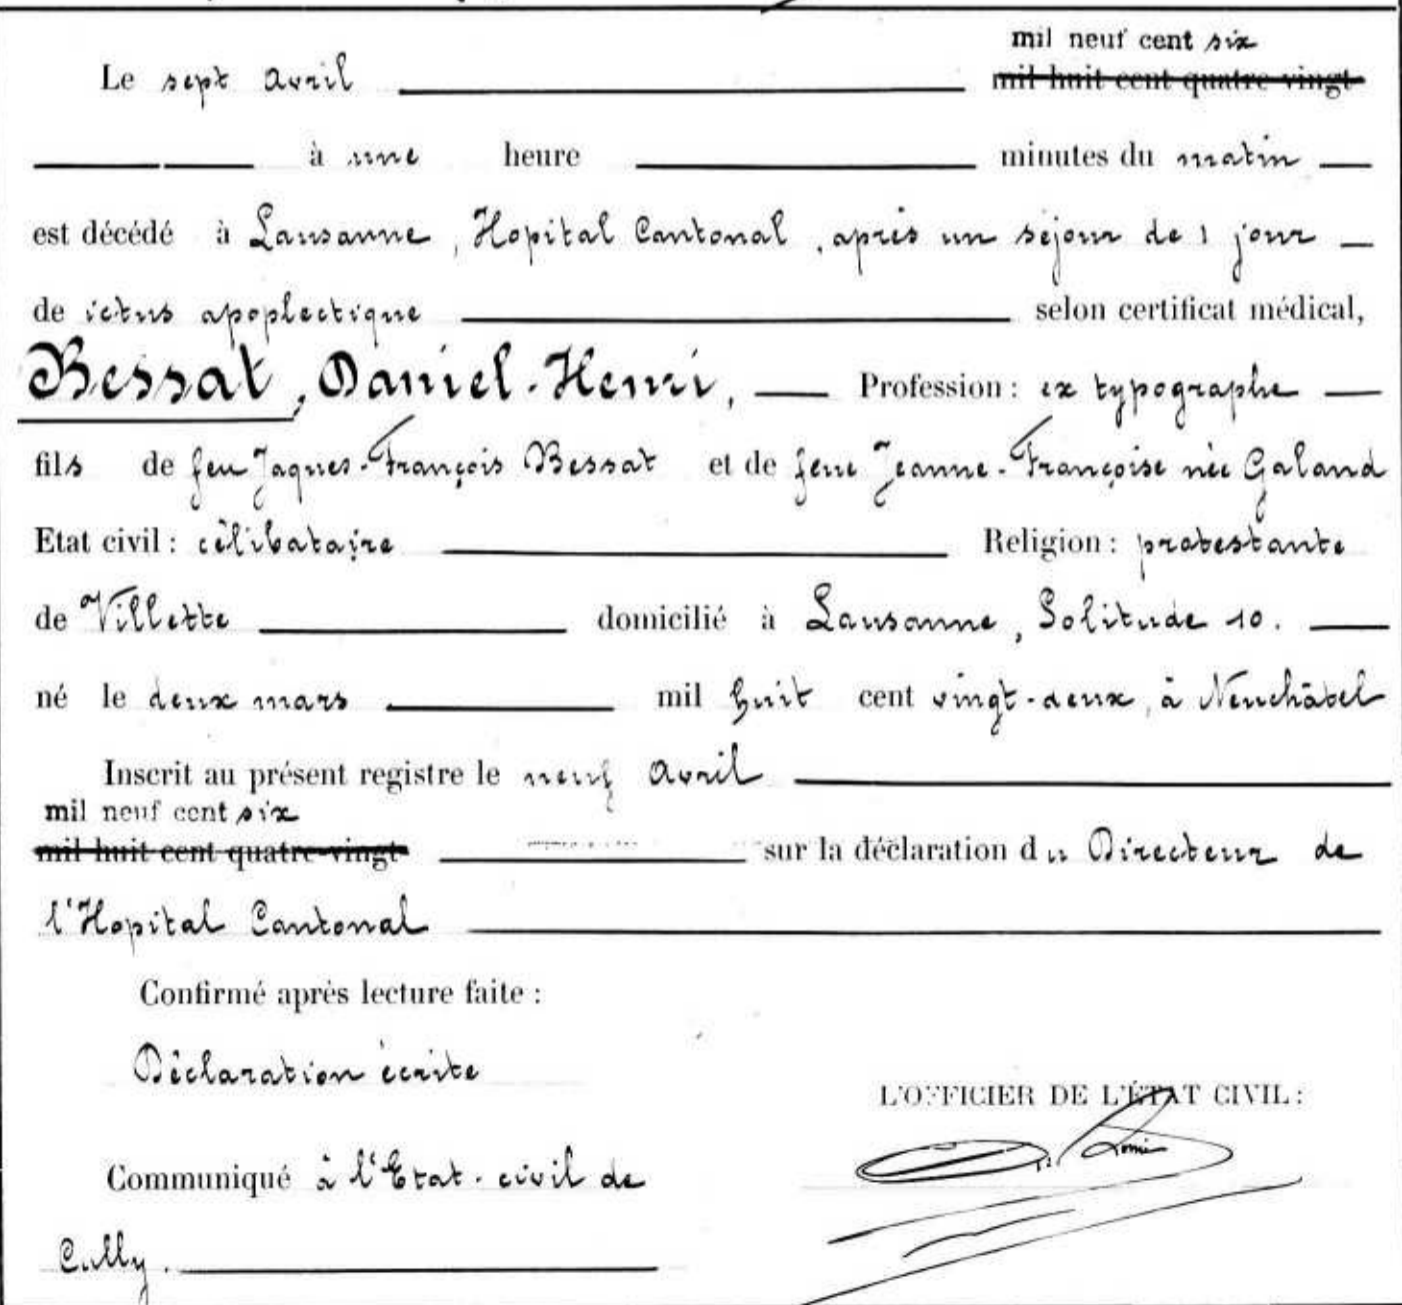 mil neuf cent six
Le sept avril mil huit cent quatre-vingt
à une heure minutes du matin
est décédé à Lausanne, Hopital Cantonal, après un séjour de 1 jour
de ictus apoplectique selon certificat médical,
Bessat, Daniel-Henri, Profession : ex typographe
fils de feu Jaques-François Bessat et de feue Jeanne-Françoise née Galand
Etat civil : célibataire Religion : protestante
de Villette domicilié à Lausanne, Solitude 10.
né le deux mars mil huit cent vingt-deux, à Neuchâtel
Inscrit au présent registre le neuf avril
mil neuf cent six
mil huit cent quatre-vingt sur la déclaration du Directeur de
l'Hopital Cantonal
Confirmé après lecture faite :
Déclaration écrite
L'OFFICIER DE L'ÉTAT CIVIL :
Communiqué à l'Etat-civil de
Cully.